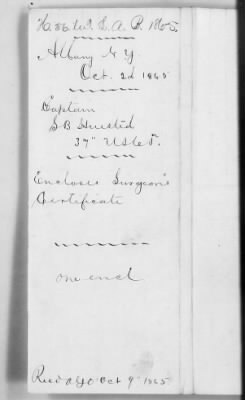 Albany N.Y.
Oct. 2d 1865
Captain
S B Husted
37"
Encloses Surgeon's
Certificate
one encl
Recd AGO Oct 9" 1865